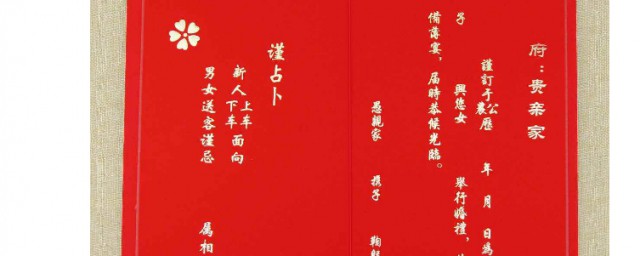 府：贵亲家
謹訂于公農歷 年 月 日爲
子 與您女 舉行婚禮，
備薄宴，届時恭候光臨。
愚親家 携子 鞠
谨占卜
新人上车下车面向
男女送客谨忌 属相